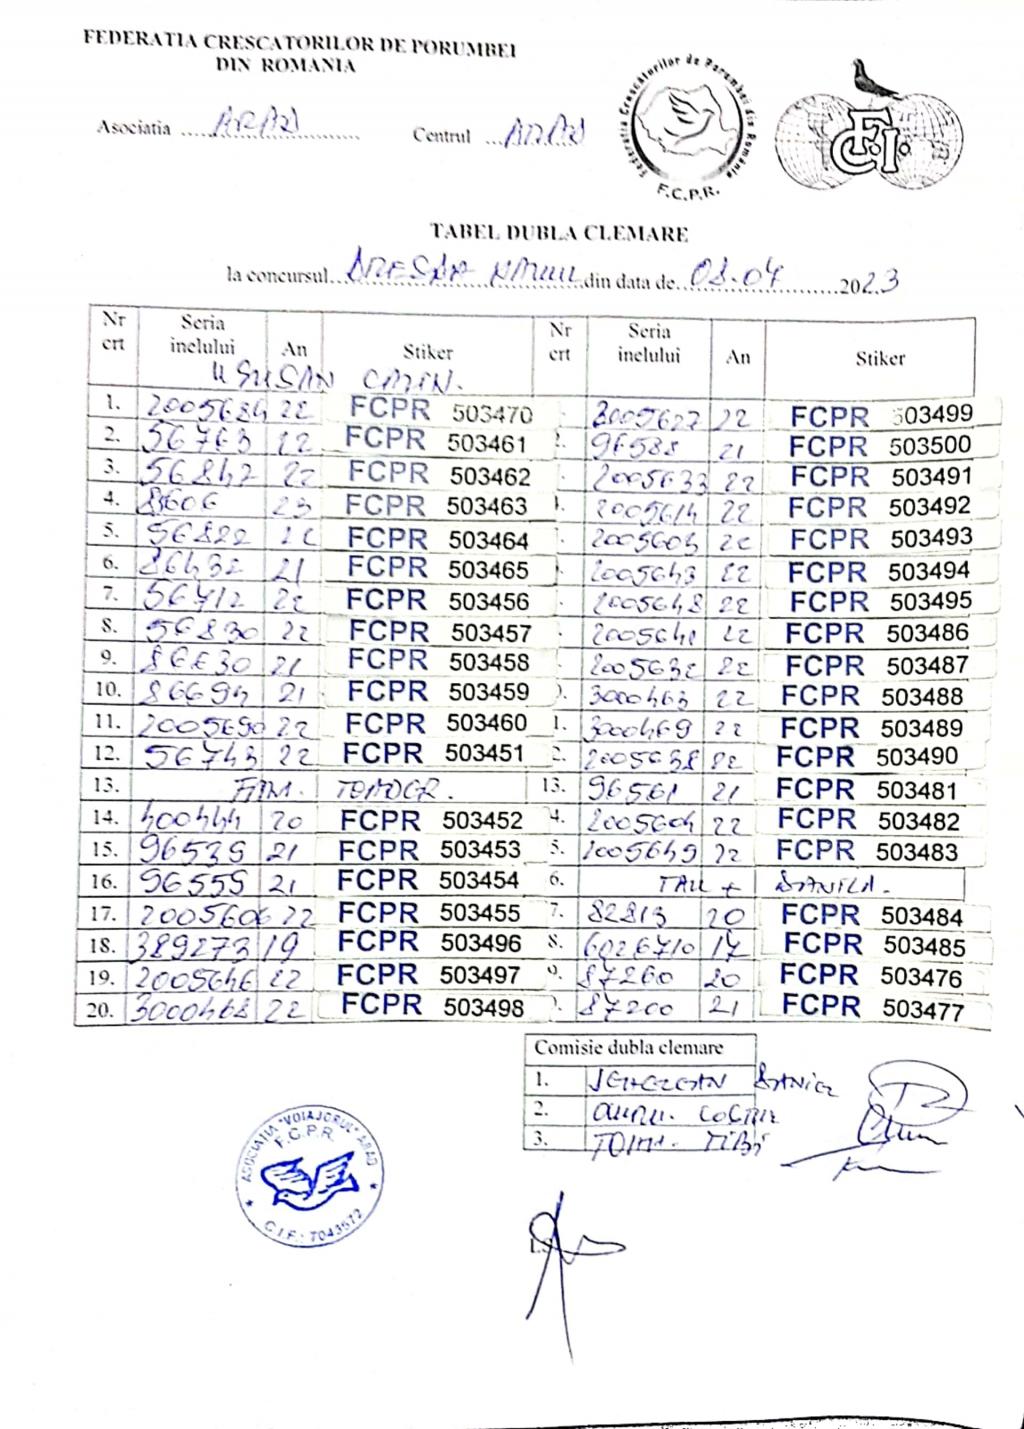 FEDERATIA CRESCATORILOR DE PORUMBEI
DIN ROMANIA
Asociatia ARAD Centrul ARAD
Federatia Crescătorilor de Porumbei din România
F.C.P.R.
F.C.I.
TABEL DUBLA CLEMARE
la concursul din data de 08.04 2023
Nr crt Seria inelului An Stiker Nr crt Seria inelului An Stiker
1. 2005684 22 FCPR 503470 2005627 22 FCPR 503499
2. 56763 22 FCPR 503461 2. 96588 21 FCPR 503500
3. 56847 22 FCPR 503462 2005633 22 FCPR 503491
4. 8606 23 FCPR 503463 2005614 22 FCPR 503492
5. 56822 22 FCPR 503464 2005603 22 FCPR 503493
6. 86432 21 FCPR 503465 2005643 22 FCPR 503494
7. 56712 22 FCPR 503456 2005648 22 FCPR 503495
8. 56830 22 FCPR 503457 2005641 22 FCPR 503486
9. 86630 21 FCPR 503458 2005632 22 FCPR 503487
10. 86694 21 FCPR 503459 3000463 22 FCPR 503488
11. 2005690 22 FCPR 503460 1. 3000469 22 FCPR 503489
12. 56743 22 FCPR 503451 2. 2005638 22 FCPR 503490
13. FAM. 13. 96561 21 FCPR 503481
14. 400444 20 FCPR 503452 4. 2005604 22 FCPR 503482
15. 96539 21 FCPR 503453 5. 2005649 22 FCPR 503483
16. 96559 21 FCPR 503454 6. TAU + DANILA.
17. 2005606 22 FCPR 503455 7. 82813 20 FCPR 503484
18. 389273 19 FCPR 503496 8. 6026710 17 FCPR 503485
19. 2005646 22 FCPR 503497 9. 87260 20 FCPR 503476
20. 3000468 22 FCPR 503498 87200 21 FCPR 503477
Comisie dubla clemare
1. DANIEL
2.
3. TOMA TIBI
ASOCIATIA "VOIAJORUL" ARAD
F.C.P.R.
C.I.F.: 7043572